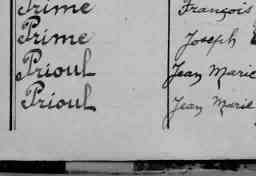 Prime François
Prime Joseph
Prioul Jean Marie
Prioul Jean Marie